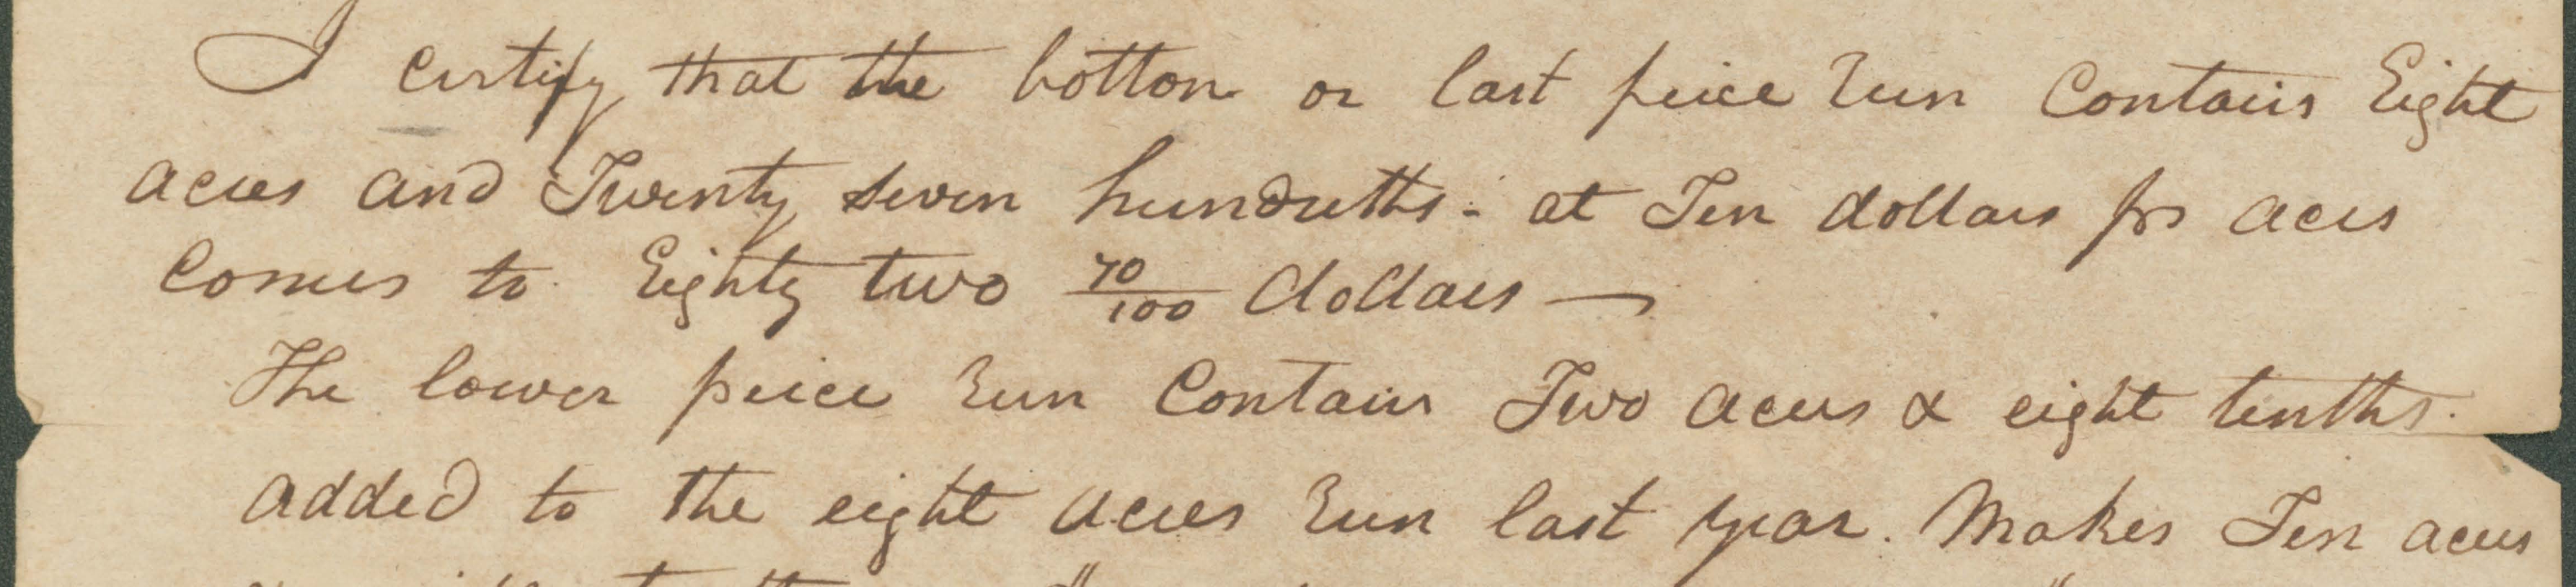 I certify that the bottom or last peice Run Contains Eight
acres and Twenty seven hundreths - at Ten dollars pr acre
Comes to Eighty two 70/100 dollars —
The lower peice Run Contains Two acres & eight tenths.
added to the eight acres Run last year. Makes Ten acres